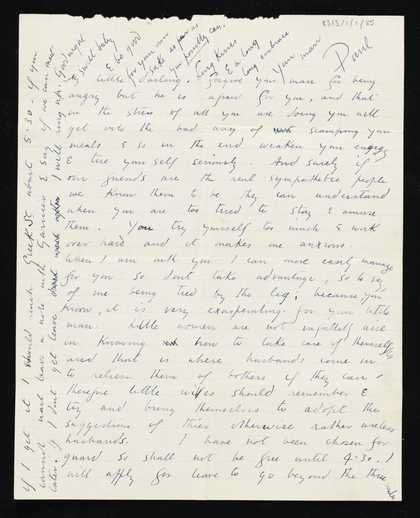 Little darling. Forgive your man for being
angry but he is afraid for you, and that
in the stress of all you are doing you will
get into the bad way of scamping your
meals & so in the end weaken your energy
& tire yourself seriously. And surely if
our friends are the real sympathetic people
we know them to be they can understand
when you are too tired to stay & amuse
them. You try yourself too much & work
over hard and it makes me anxious.
When I am with you I can more easily manage
for you so don't take advantage, so to say
of me being tied by the leg; because, you
know, it is very exasperating for your little
man. Little women are not unfailing
in knowing how to take care of themselves
and that is where husbands come in
to relieve them of bothers if they can;
therefore little wifes should remember &
try and bring themselves to adopt the
suggestions of their otherwise rather useless
husbands. I have not been chosen for
guard so shall not be free until 4.30. I
will apply for leave to go beyond the three mile
If I get it I should reach Greek St about 5.30. If you
cannot wait leave note with Garnier & say if we can meet
later. If I don't get leave I will ring up. Goodnight
sweet baby
& be good
for your man
take as much
you possibly can.
Long kisses
& a long
long embrace
Your man
Paul
8313/1/1/85